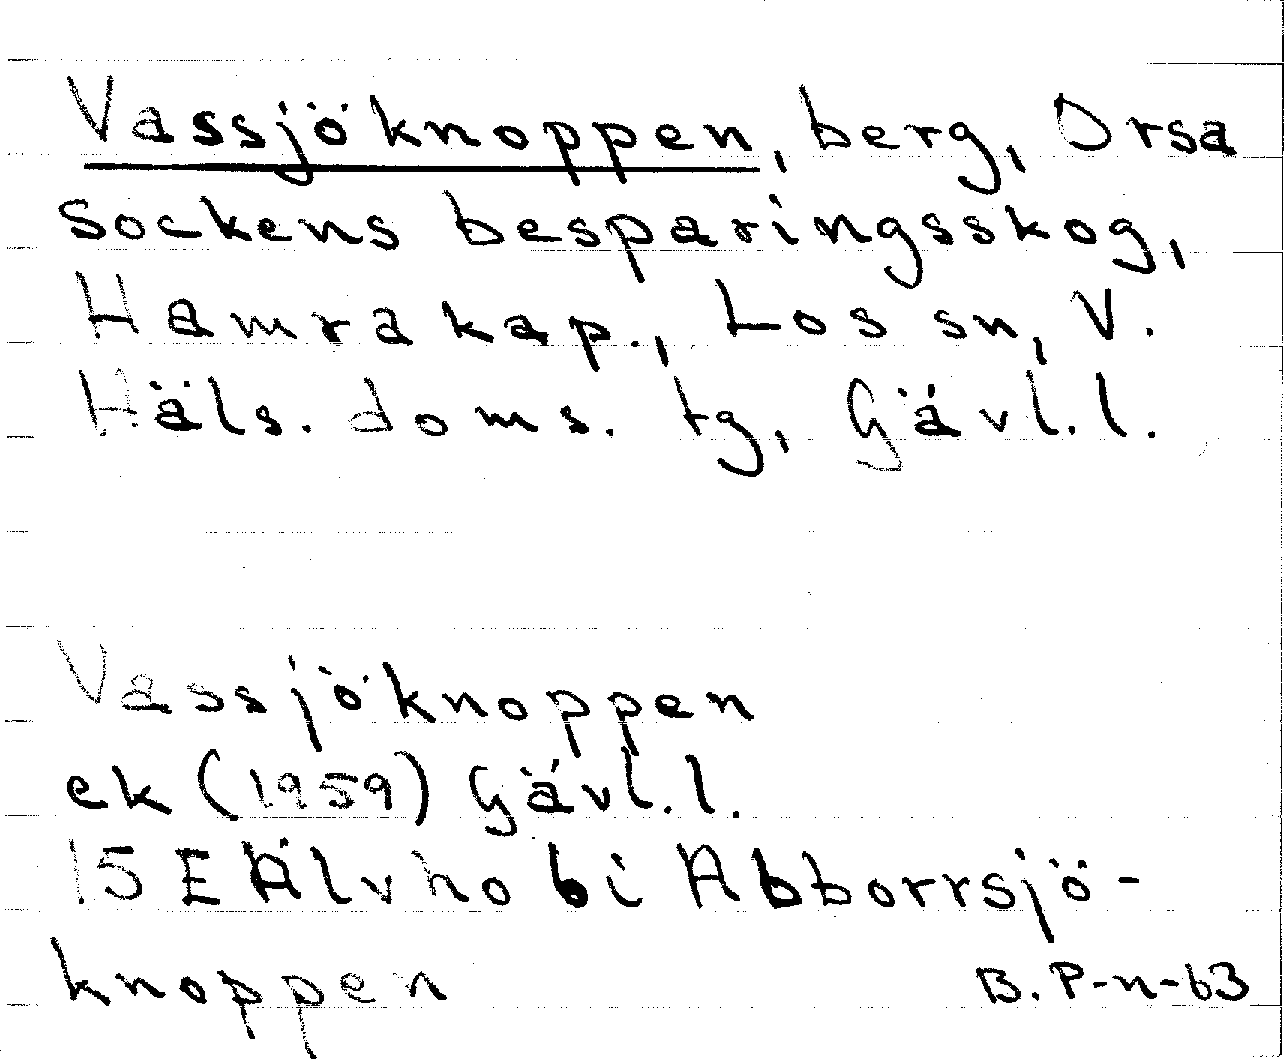 Vassjöknoppen, berg, Orsa
sockens besparingsskog,
Hamra kap., Los sn, V.
Häls. doms. tg, Gävl.l.
Vassjöknoppen
ek (1959) Gävl.l.
15 E Älvho bi Abborrsjö-
knoppen
B. P-n-63